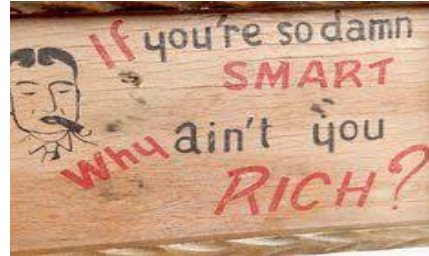 If you're so damn
SMART
Why ain't you
RICH?